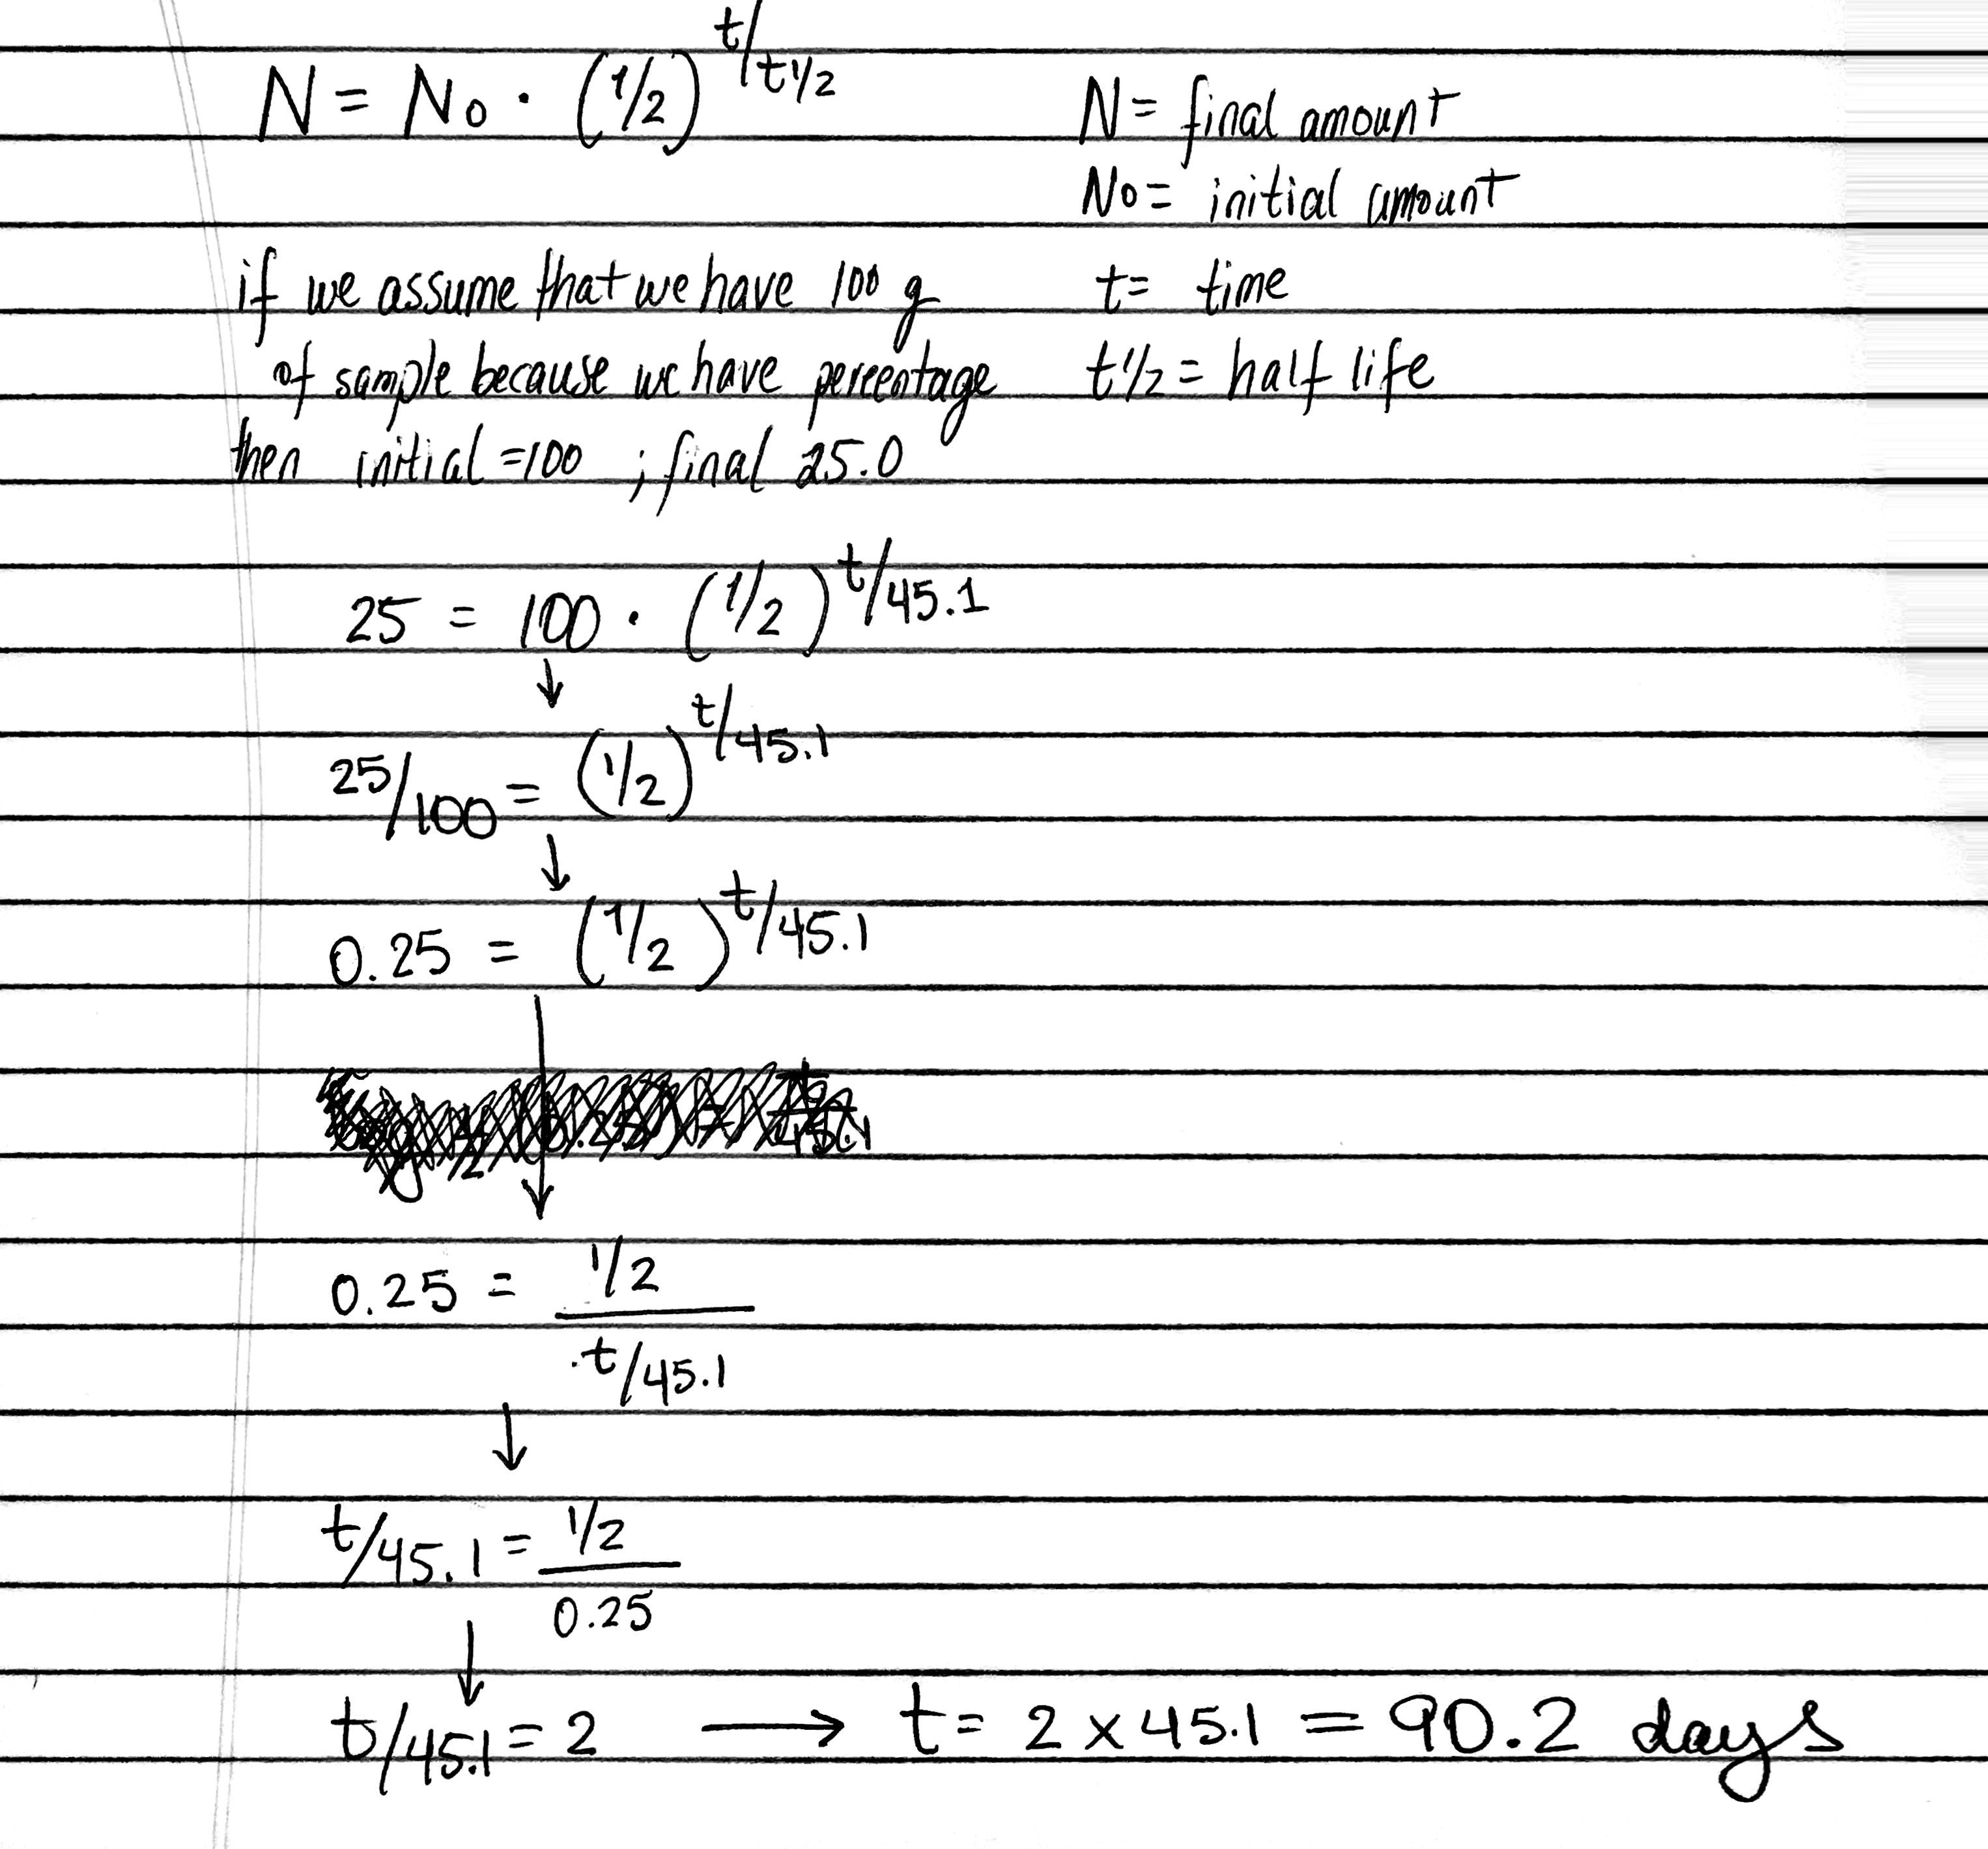 N = No · (1/2)^t/t1/2
N = final amount
No = initial amount
if we assume that we have 100 g
t = time
of sample because we have percentage
t1/2 = half life
then initial =100 ; final 25.0
25 = 100 · (1/2)^t/45.1
↓
25/100 = (1/2)^t/45.1
↓
0.25 = (1/2)^t/45.1
↓
0.25 = 1/2 / t/45.1
↓
t/45.1 = 1/2 / 0.25
↓
t/45.1 = 2 → t = 2 x 45.1 = 90.2 days